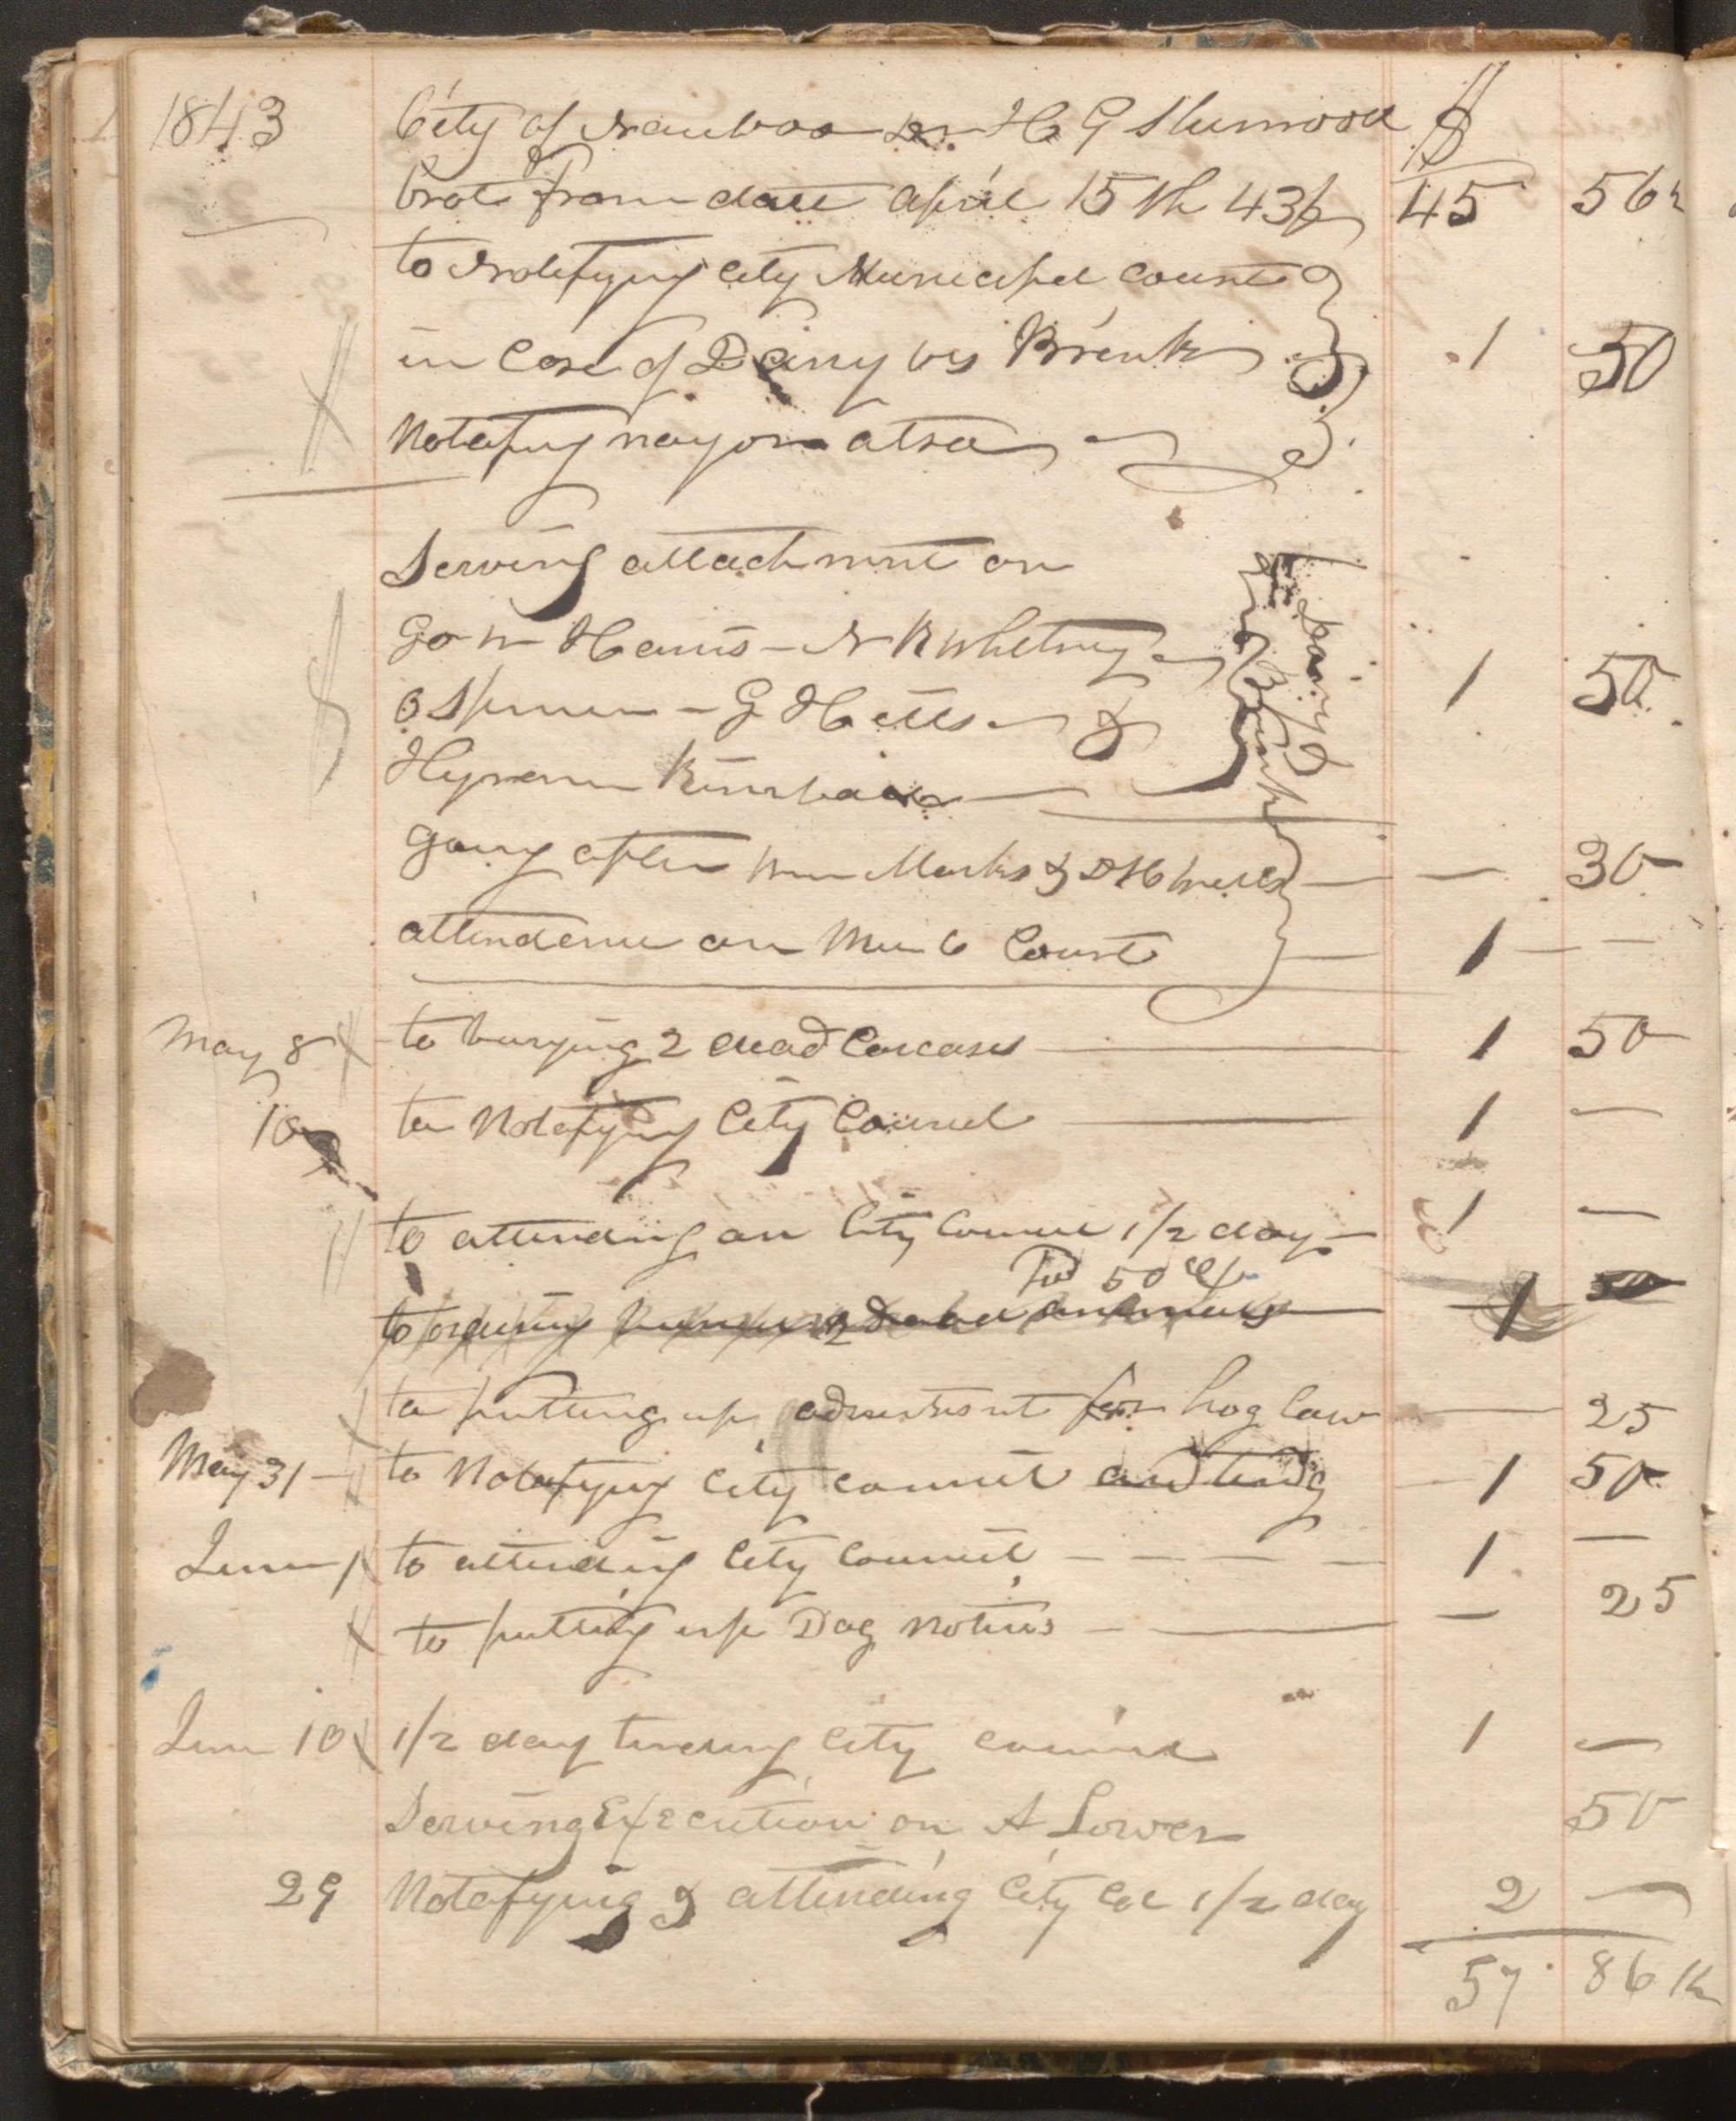 1843 City of Nauvoo Dr H G Sherwood $
Brot from date April 15th 43 45 56½
to Notifying City Municipal Court
in Case of Dainy vs Brink 1 50
Notafing mayor also
Serving attachment on
Go W Harris – N K Whitney
O Spencer – G Hills &
Hyrum Kimball 1 50
Dainy vs Brink
going after Wm Marks & D H Wells — — 30
attendence on Mu C Court — 1 — —
May 8 to burying 2 dead Carcases — 1 50
10 to Notafying City Council — 1 —
to attending on City Council 1/2 day – 1 —
Pd 50 cts
to 2 dead animals — 1 50
to putting up advertisnt for hog law — 25
May 31 – to Notafying City council and tendg – 1 50
June 1 to attending City Council – – – – 1 —
to putting up Dog notices – — — 25
June 10 1/2 day tending City council 1 —
Serving Execution on A Lower 50
29 Notafying & attending City Col 1/2 day 2 —
57 86 ½